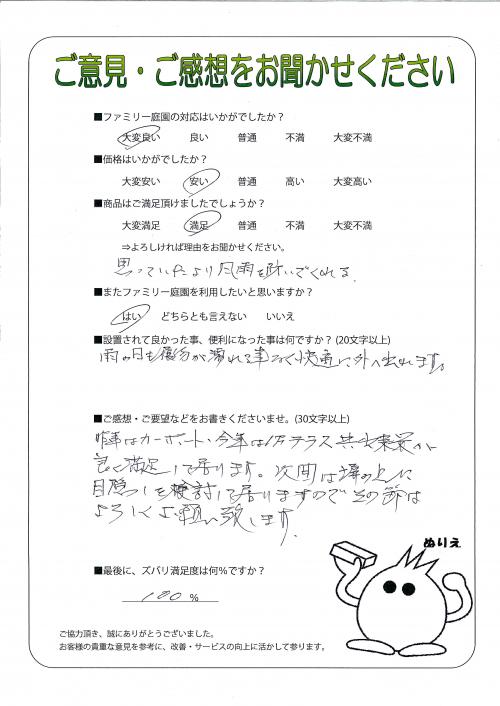 ご意見・ご感想をお聞かせください
■ファミリー庭園の対応はいかがでしたか？
大変良い 良い 普通 不満 大変不満
■価格はいかがでしたか？
大変安い 安い 普通 高い 大変高い
■商品はご満足頂けましたでしょうか？
大変満足 満足 普通 不満 大変不満
⇒よろしければ理由をお聞かせください。
思っていたより風雨を防いでくれる。
■またファミリー庭園を利用したいと思いますか？
はい どちらとも言えない いいえ
■設置されて良かった事、便利になった事は何ですか？(20文字以上)
雨の日も 濡れる事なく快適に外へ出れます。
■ご感想・ご要望などをお書きくださいませ。(30文字以上)
昨年はカーポート、今年はテラス共
満足して居ります。次回は塀の上に
目隠しを検討して居りますのでその節は
よろしくお願い致します。
■最後に、ズバリ満足度は何%ですか？
100 %
ぬりえ
ご協力頂き、誠にありがとうございました。
お客様の貴重な意見を参考に、改善・サービスの向上に活かして参ります。